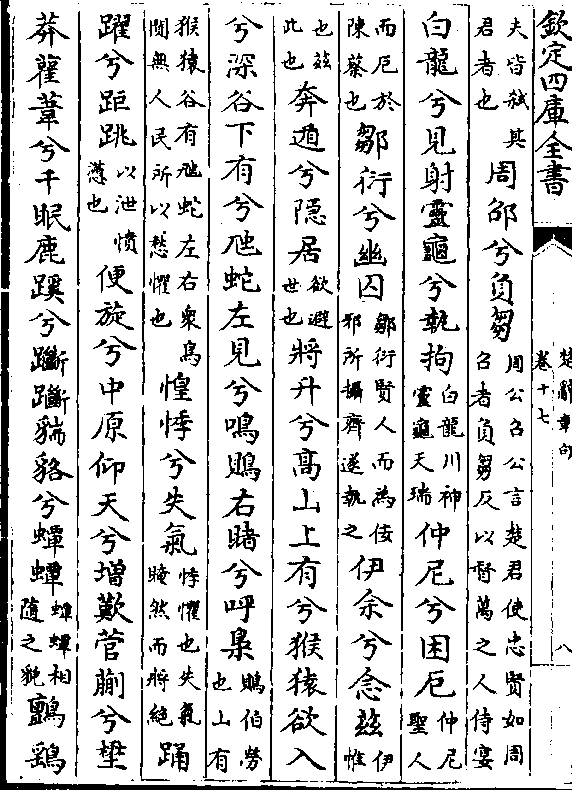 欽定四庫全書
楚辭章句
卷十七
八
夫皆弒其君者也周邵兮負芻周公召公言楚君使忠賢如周召者負芻反以督萬之人侍宴
白龍兮見射靈龜兮執拘白龍川神靈龜天瑞仲尼兮困厄仲尼聖人
而厄於陳蔡也鄒衍兮幽囚鄒衍賢人而為佞邪所攝齊遂執之伊余兮念茲伊惟
也茲此也奔遁兮隱居欲避世也將升兮高山上有兮猴猿欲入
兮深谷下有兮虺蛇左見兮鳴鵙右睹兮呼梟鵙伯勞也上有
猴猿谷有虺蛇左右衆鳥間無人民所以愁懼也惶悸兮失氣悸懼也失氣晻然而將絶踊
躍兮距跳以泄憤懣也便旋兮中原仰天兮增歎菅蒯兮壄
莽雚葦兮千眠鹿蹊兮𨇨𨇨貒貉兮蟫蟫蟫蟫相隨之貌鸇鷂